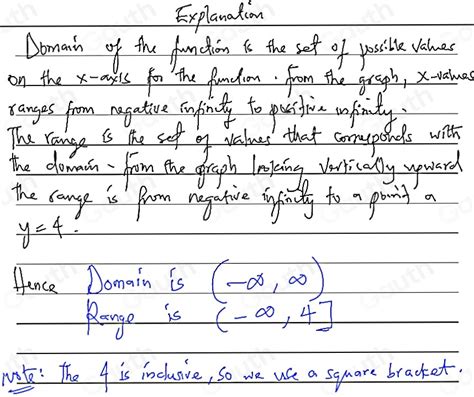 Explanation
Domain of the function is the set of possible values
on the x-axis for the function. from the graph, x-values
ranges from negative infinity to positive infinity.
The range is the set of values that corresponds with
the domain. from the graph looking vertically upward
the range is from negative infinity to a point a
y=4.
Hence Domain is (-∞, ∞)
Range is (-∞, 4]
Note: The 4 is inclusive, so we use a square bracket.